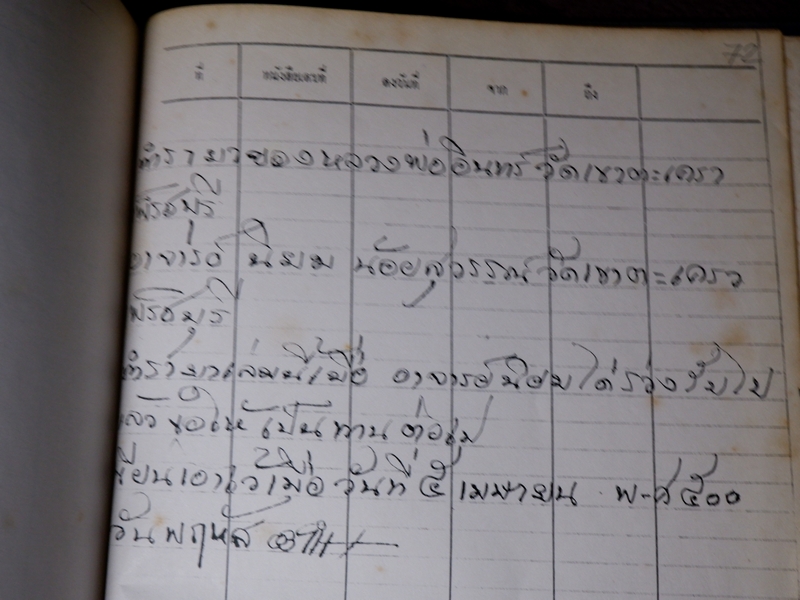 72
ที่ หนังสือเลขที่ ลงวันที่ จาก ถึง
ตำรายาของหลวงพ่ออินทร์ วัดเขาตะเครา
เพ็รชบุรี
อาจารย์ นิยม น้อยสุวรรณ์ วัดเขาตะเครา
เพ็รชบุรี
ตำรายาเล่มนี้เมื่อ อาจารย์นิยมได้ร่วงรับไป
แล้ว ขอให้เป็นทานต่อไป
เขียนเอาไว้เมื่อ วันที่ ๕ เมษายน พ-ศ ๕๐๐
วันพฤหัส